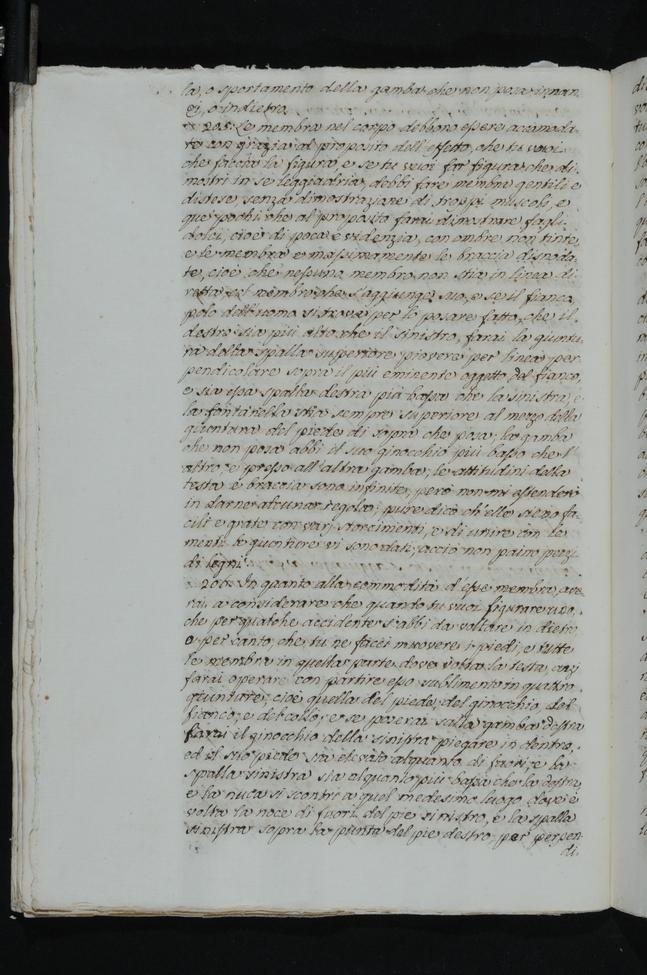 la, o sportamento della gamba che non posa innan
zi, o indietro.
205. Le membra nel corpo debbono essere accomoda-
te con grazia al proposito dell'effetto, che tu vuoi
che faccia la figura, e se tu vuoi far figura che di-
mostri in se leggiadria, debbi fare membra gentili e
distese, senza dimostrazione di troppi muscoli, e
que' pochi che al proposito farai dimostrare fagli
dolci, cioè di poca evidenzia, con ombre non tinte,
e le membra e massimamente le braccia disnoda-
te, cioè che nessuno membro non stia in linea di-
retta col membro che s'aggiunge seco, e se il fianco,
polo dell'uomo si trova per lo posare fatto, che il
destro sia più alto che il sinistro, farai la giuntu-
ra della spalla superiore piovere per linea per-
pendicolare sopra il più eminente oggetto del fianco,
e sia essa spalla destra più bassa che la sinistra, e
la fontanella stia sempre superiore al mezzo della
giuntura del piede di sopra che posa; la gamba
che non posa abbi il suo ginocchio più basso che l'
altro, e presso all'altra gamba; le attitudini della
testa e braccia sono infinite, però non mi estenderò
in darne alcuna regola; pure dico ch'elle sieno fa-
cili e grate con varj storcimenti, e di unire con le
giunture vi sono date, acciò non paino pezzi
di legni.
206. In quanto alla commodità d'esse membra, ave-
rai a considerare che quando tu vuoi figurare uno,
che per qualche accidente s'abbi da voltare in dietro
o per canto, che tu ne facci muovere i piedi, e tutte
le membra in quella parte dove volta la testa, anzi
farai operare con partire esso in quattro
giunture, cioè quella del piede, del ginocchio, del
fianco, e del collo; e se poserai sulla gamba destra
farai il ginocchio della sinistra piegare in dentro,
ed il suo piede sia elevato alquanto di fuori, e la
spalla sinistra sia alquanto più bassa che la destra,
e la nuca si scontri a quel medesimo luogo dove è
volta la noce di fuori del piè sinistro, e la spalla
sinistra sopra la punta del piè destro per perpen-
di-